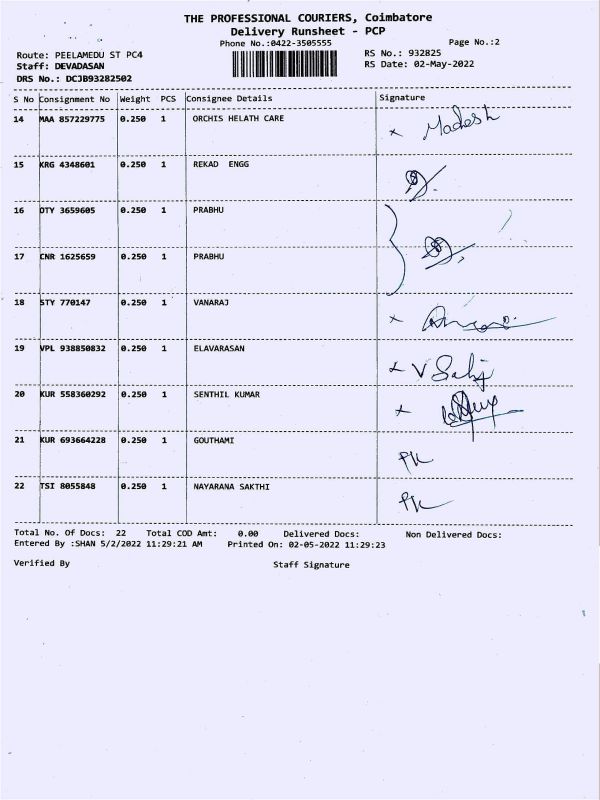 THE PROFESSIONAL COURIERS, Coimbatore
Delivery Runsheet - PCP
Phone No.:0422-3505555 Page No.:2
Route: PEELAMEDU ST PC4 RS No.: 932825
Staff: DEVADASAN RS Date: 02-May-2022
DRS No.: DCJB93282502
S No Consignment No Weight PCS Consignee Details Signature
14 MAA 857229775 0.250 1 ORCHIS HELATH CARE x Madesh
15 KRG 4348601 0.250 1 REKAD ENGG
16 DTY 3659605 0.250 1 PRABHU
17 CNR 1625659 0.250 1 PRABHU
18 STY 770147 0.250 1 VANARAJ x
19 VPL 938850832 0.250 1 ELAVARASAN x V
20 KUR 558360292 0.250 1 SENTHIL KUMAR x
21 KUR 693664228 0.250 1 GOUTHAMI PK
22 TSI 8055848 0.250 1 NAYARANA SAKTHI PK
Total No. Of Docs: 22 Total COD Amt: 0.00 Delivered Docs: Non Delivered Docs:
Entered By :SHAN 5/2/2022 11:29:21 AM Printed On: 02-05-2022 11:29:23
Verified By Staff Signature